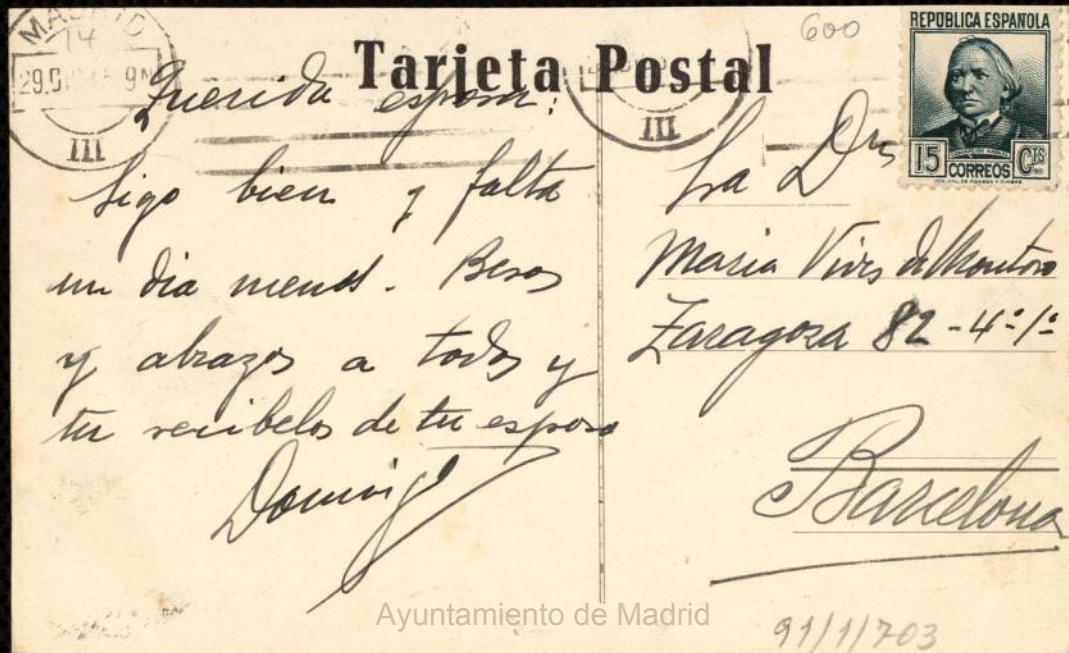 Tarjeta Postal
MADRID
14
III
III
600
REPÚBLICA ESPAÑOLA
15 CORREOS CTS
Querida esposa:
Sigo bien y falta
un dia menos. Besos
y abrazos a todos y
tu recibelos de tu esposo
Domingo
Sra Dña
Maria Vives de Montoro
Zaragoza 82-4º-1ª
Barcelona
Ayuntamiento de Madrid
91/1/703